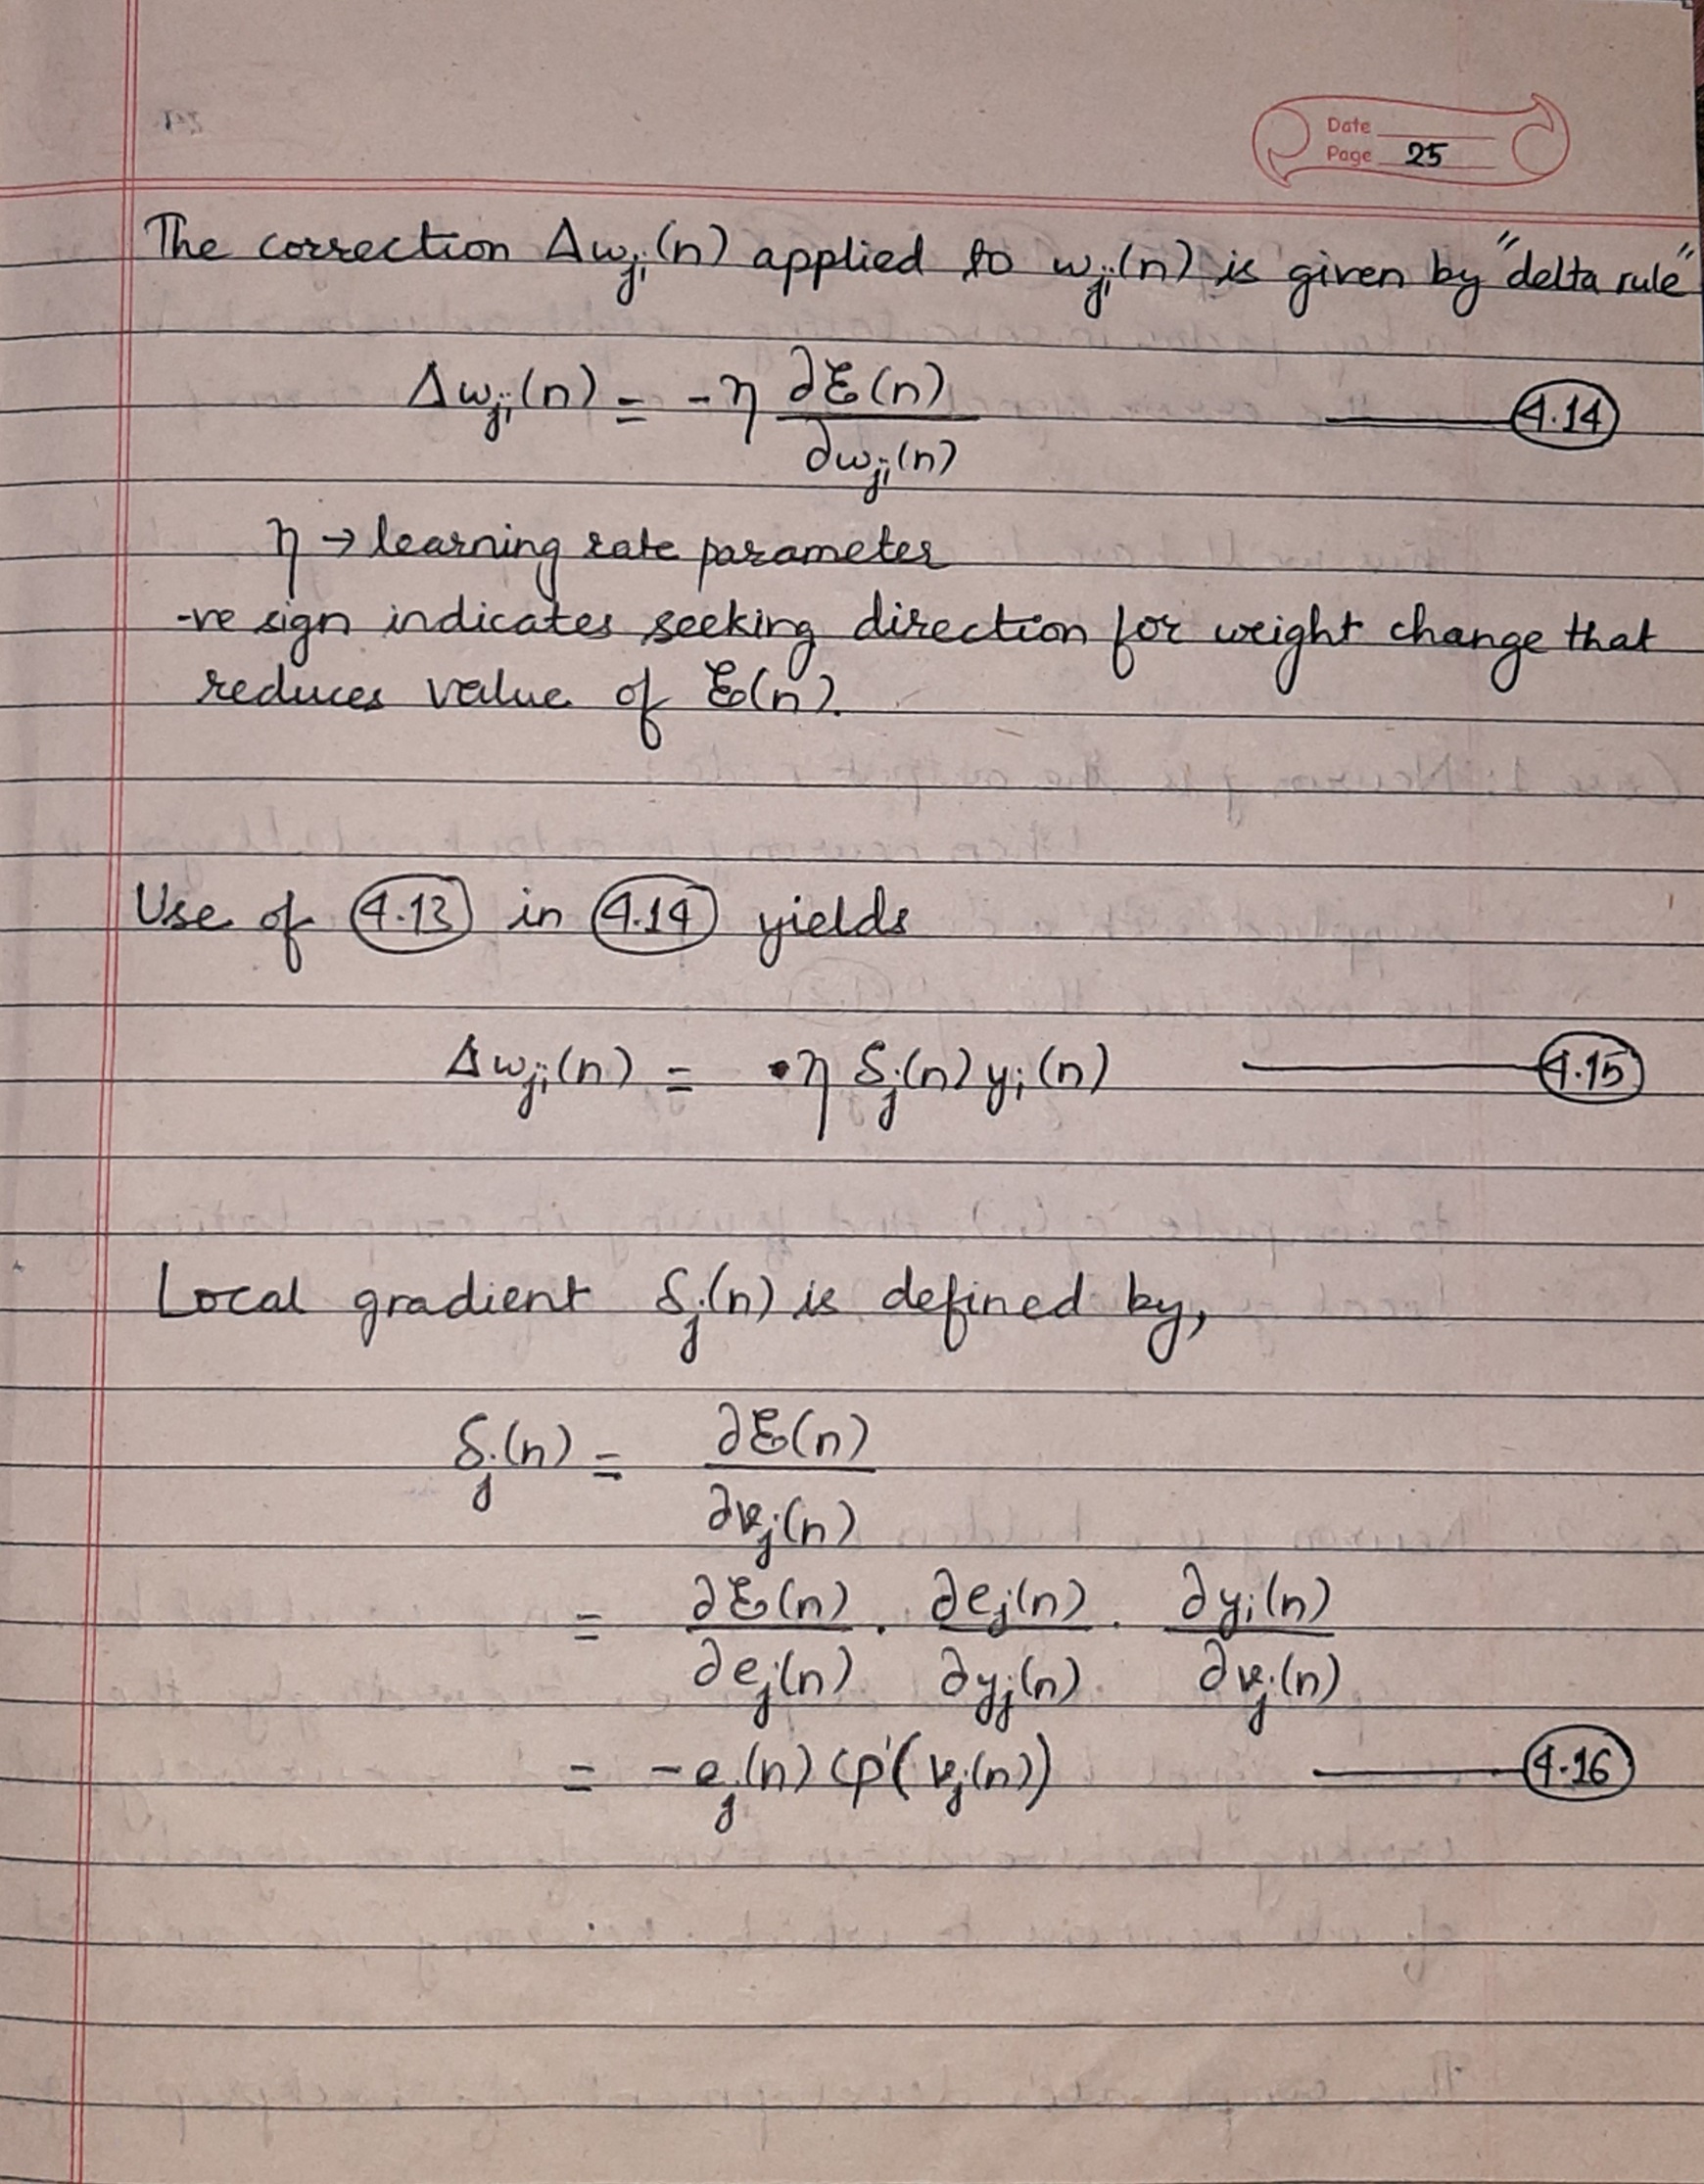 Date
Page 25
The correction Δwji(n) applied to wji(n) is given by "delta rule"
Δwji(n) = -η ∂ℰ(n)/∂wji(n) (4.14)
η → learning rate parameter
-ve sign indicates seeking direction for weight change that
reduces value of ℰ(n).
Use of (4.13) in (4.14) yields
Δwji(n) = η δj(n) yi(n) (4.15)
Local gradient δj(n) is defined by,
δj(n) = ∂ℰ(n)/∂vj(n)
= ∂ℰ(n)/∂ej(n) . ∂ej(n)/∂yj(n) . ∂yi(n)/∂vj(n)
= -ej(n) φ'(vj(n)) (4.16)